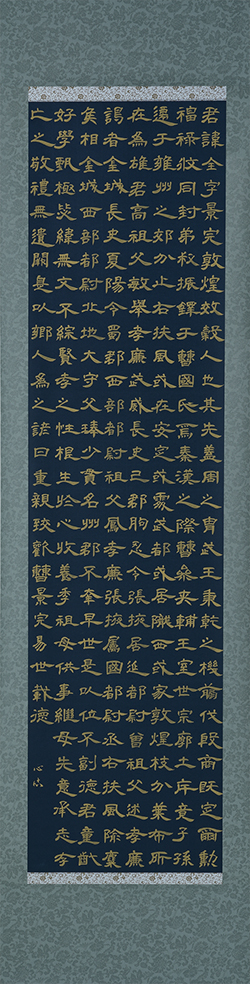 君諱全字景完敦煌效穀人也其先蓋周之胄武王秉乾之機翦伐殷商既定爾勳
福祿攸同封弟叔振鐸于曹國氏焉秦漢之際曹參夾輔王室世宗廓土斥竟子孫
遷于雍州之郊分止右扶風或在安定或處武都或居隴西或家敦煌枝分葉布所
在為雄君高祖父敏舉孝廉武威長史巴郡朐忍令張掖居延都尉曾祖父述孝廉
謁者金城長史夏陽令蜀郡西部都尉祖父鳳孝廉張掖屬國都尉丞右扶風隃麋
侯相金城西部都尉北地大守父琫少貫名州郡不幸早世是以位不副德君童齔
好學甄極毖緯無文不綜賢孝之性根生於心收養季祖母供事繼母先意承志存
亡之敬禮無遺闕是以鄉人為之諺曰重親致歡曹景完易世載德